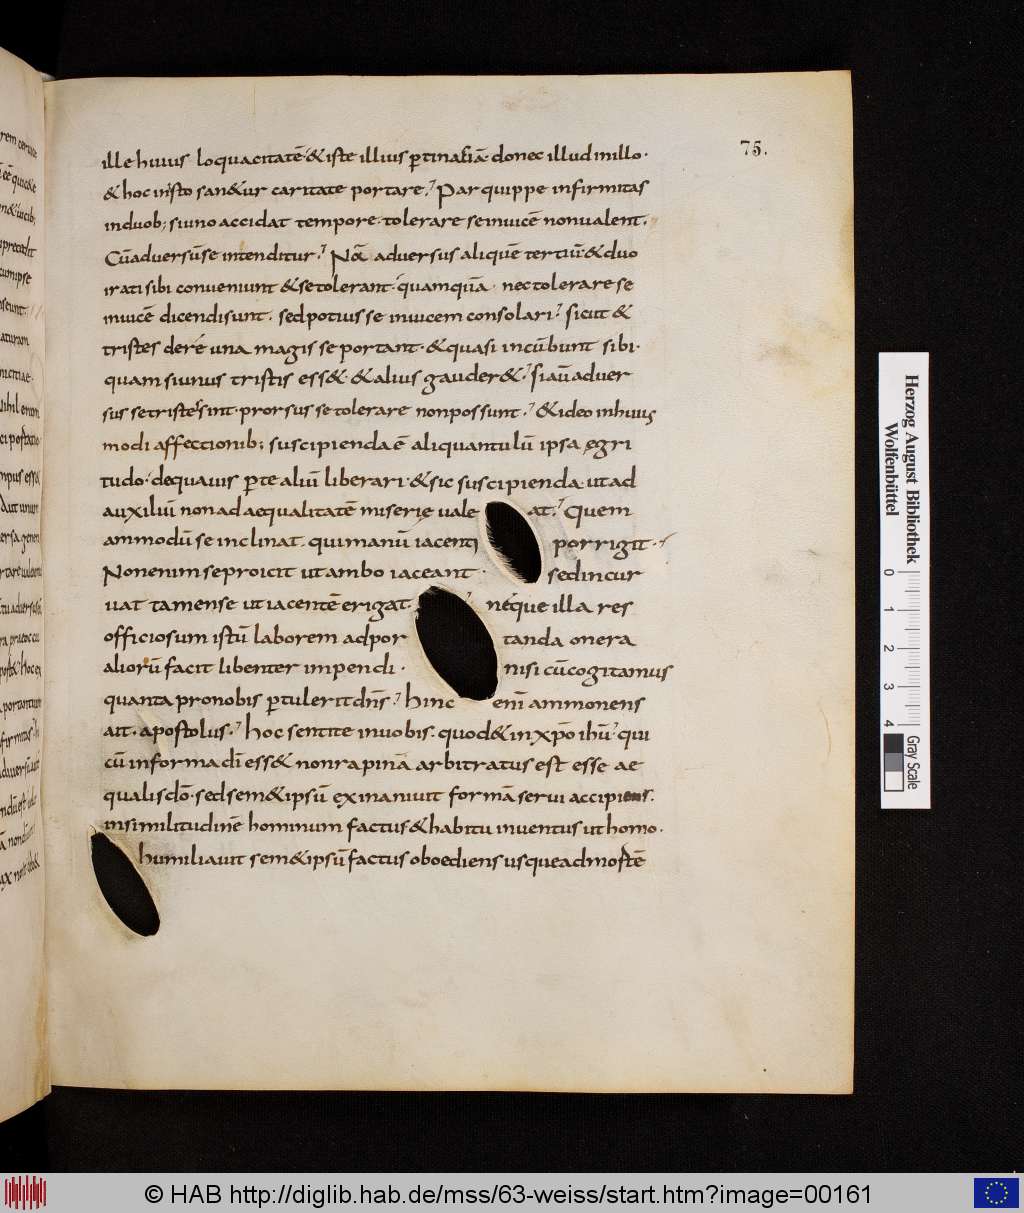 75.
ille huius loquacitatē· & iste illius ꝑtinaciā· donec illud in illo·
& hoc in isto san&ur caritate portare; Par quippe infirmitas
in duob; si uno accidat tempore· tolerare se inuicē non ualent·
Cū aduersū se intenditur; Nā aduersus aliquē tertiū· & duo
irati sibi conueniunt & se tolerant· quamquā nec tolerare se
inuicē dicendi sunt· sed potius se inuicem consolari; sicut &
tristes de re una magis se portant· & quasi incūbunt sibi·
quam si unus tristis ess&· & alius gauder&; si aū aduer
sus se tristes sint· prorsus se tolerare non possunt; & ideo in huius
modi affectionib; suscipienda ē aliquantulū ipsa ęgri
tudo· de qua uis ꝑ te aliū liberari· & sic suscipienda· ut ad
auxiliū non ad aequalitatē miserię uale at; Quem
ammodū se inclinat· qui manū iacenti porrigit·
Non enim se proicit ut ambo iaceant· sed incur
uat tamen se ut iacentē erigat· neque illa res
officiosum istū laborem ad por tanda onera
aliorū facit libenter impendi· nisi cū cogitamus
quanta pro nobis ꝑtulerit dn̄s; hinc enī ammonens
ait· apostolus; hoc sentite in uobis· quod & in xp̄o ihū· qui
cū in forma dī ess& non rapinā arbitratus est esse ae
qualis dō· sed sem&ipsū exinaniuit formā serui accipiens·
in similitudinē hominum factus & habitu inuentus ut homo·
humiliauit sem&ipsū factus oboediens usque ad mortē
Herzog August Bibliothek
Wolfenbüttel
0 1 2 3 4
Gray Scale
© HAB http://diglib.hab.de/mss/63-weiss/start.htm?image=00161